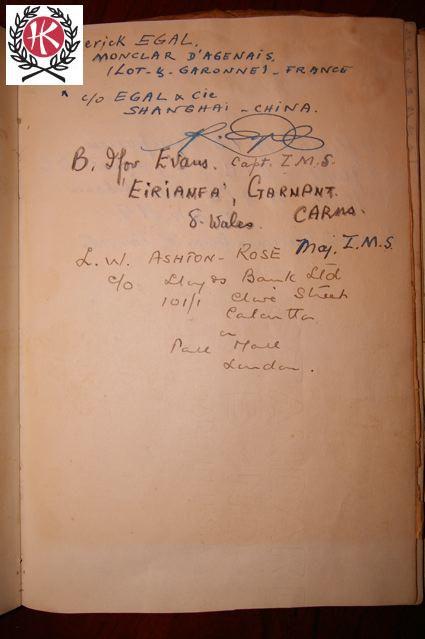 HK
erick EGAL,
MONCLAR D'AGENAIS,
(LOT-&-GARONNE) - FRANCE
c/o EGAL & Cie
SHANGHAI - CHINA.
B. Ifor Evans. Capt. I.M.S.
'EIRIANFA', GARNANT.
S. Wales. CARMS.
L. W. ASHTON-ROSE Maj. I.M.S.
c/o Lloyds Bank Ltd
101/1 Clive Street
Calcutta
or
Pall Mall
London.